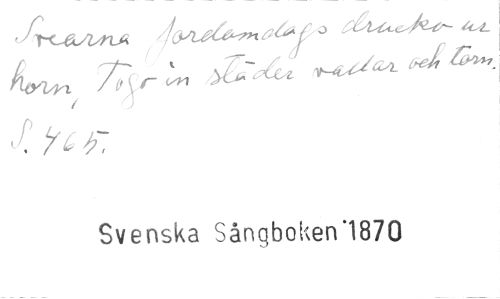 Svearna fordomdags drucko ur
horn, Togo in städer vallar och torn.
S. 465.
Svenska Sångboken 1870